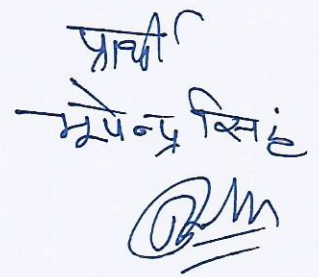 प्रार्थी
भूपेन्द्र सिंह